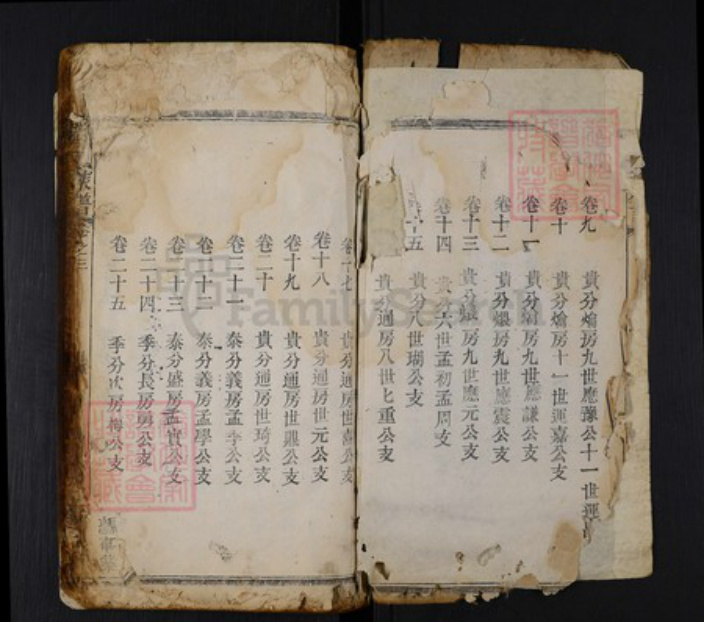 卷九 貴分爚房九世應豫公十一世運
卷十 貴分爚房十一世運嘉公支
卷十一 貴分爚房九世應謙公支
卷十二 貴分爚房九世應震公支
卷十三 貴分爚房九世應元公支
卷十四 貴分六世孟初孟周支
十五 貴分八世瑚公支
貴分通房八世七重公支
卷十七 貴分通房世喜公支
卷十八 貴分通房世元公支
卷十九 貴分通房世鼎公支
卷二十 貴分通房世琦公支
卷二十一 泰分義房孟季公支
卷二十二 泰分義房孟學公支
卷二十三 泰分盛房孟實公支
卷二十四 季分長房興公支
卷二十五 季分次房梅公支
族譜卷之三
FamilySearch